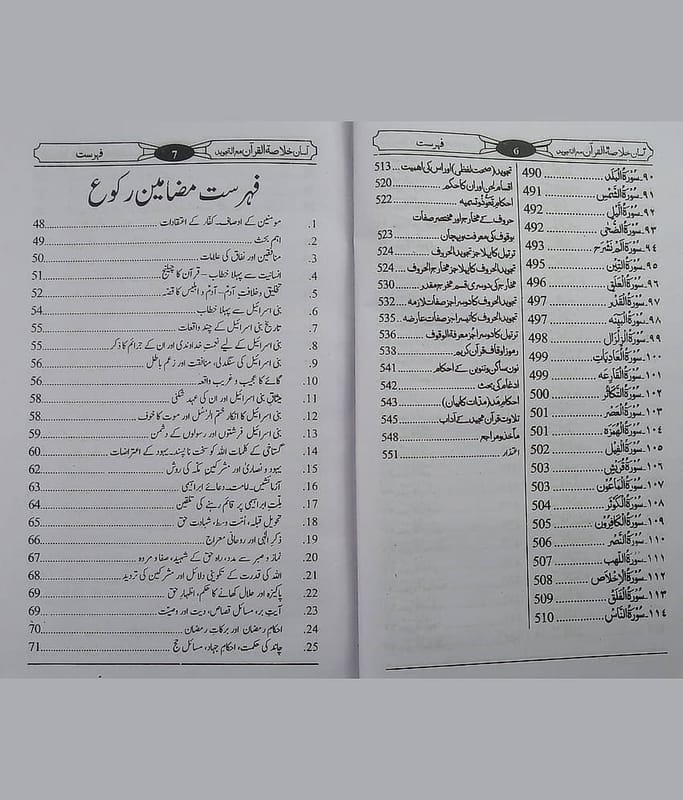 آسان خلاصۃ القرآن مع التجوید 6 فہرست
۹۰۔ سُوْرَۃُ الْبَلَد 490
۹۱۔ سُوْرَۃُ الشَّمْس 491
۹۲۔ سُوْرَۃُ الَّیْل 492
۹۳۔ سُوْرَۃُ الضُّحٰی 492
۹۴۔ سُوْرَۃُ اَلَمْ نَشْرَح 493
۹۵۔ سُوْرَۃُ التِّیْن 495
۹۶۔ سُوْرَۃُ الْعَلَق 496
۹۷۔ سُوْرَۃُ الْقَدْر 497
۹۸۔ سُوْرَۃُ الْبَیِّنَہ 497
۹۹۔ سُوْرَۃُ الزِّلْزَال 498
۱۰۰۔ سُوْرَۃُ الْعَادِیَات 499
۱۰۱۔ سُوْرَۃُ الْقَارِعَہ 499
۱۰۲۔ سُوْرَۃُ التَّکَاثُر 500
۱۰۳۔ سُوْرَۃُ الْعَصْر 501
۱۰۴۔ سُوْرَۃُ الْھُمَزَہ 501
۱۰۵۔ سُوْرَۃُ الْفِیْل 502
۱۰۶۔ سُوْرَۃُ قُرَیْش 503
۱۰۷۔ سُوْرَۃُ الْمَاعُوْن 503
۱۰۸۔ سُوْرَۃُ الْکَوْثَر 504
۱۰۹۔ سُوْرَۃُ الْکَافِرُوْن 505
۱۱۰۔ سُوْرَۃُ النَّصْر 506
۱۱۱۔ سُوْرَۃُ اللَّھَب 507
۱۱۲۔ سُوْرَۃُ الْاِخْلَاص 508
۱۱۳۔ سُوْرَۃُ الْفَلَق 509
۱۱۴۔ سُوْرَۃُ النَّاس 510
تجوید (صحت لفظی) اور اس کی اہمیت 513
اقسام لحن اور ان کا حکم 520
احکام تعوذ و تسمیہ 522
حروف کے مخارج اور مختصر صفات
بوقوف کی معرفت و پہچان 523
ترتیل کا پہلا جز تجوید الحروف 524
تجوید الحروف کا پہلا جز مخارج الحروف 524
مخارج کی دوسری قسم مخرج مقدر 530
تجوید الحروف کا دوسرا جز صفات لازمہ 532
تجوید الحروف کا تیسرا جز صفات عارضہ 535
ترتیل کا دوسرا جز معرفۃ الوقوف 536
رموز اوقاف قرآن کریم 538
نون ساکن و تنوین کے احکام 541
ادغام کی بحث 542
احکام مَد (مدات کا بیان) 543
تلاوت قرآن مجید کے آداب 545
مآخذ و مراجع 548
اعتذار 551
آسان خلاصۃ القرآن مع التجوید 7 فہرست
فہرست مضامین رکوع
1. مومنین کے اوصاف۔ کفار کے اعتقادات 48
2. اہم بحث 49
3. منافقین اور نفاق کی علامات 50
4. انسانیت سے پہلا خطاب – قرآن کا چیلنج 51
5. تخلیق و خلافت آدمؑ – آدمؑ و ابلیس کا قصہ 52
6. بنی اسرائیل سے پہلا خطاب 54
7. تاریخ بنی اسرائیل کے چند واقعات 55
8. بنی اسرائیل کے لیے نعمت خداوندی اور ان کے جرائم کا ذکر 55
9. بنی اسرائیل کی سنگدلی، منافقت اور زعم باطل 56
10. گائے کا عجیب و غریب واقعہ 56
11. میثاق بنی اسرائیل اور ان کی عہد شکنی 58
12. بنی اسرائیل کا انکار ختم الرسل اور موت کا خوف 58
13. بنی اسرائیل فرشتوں اور رسولوں کے دشمن 59
14. گستاخی کے کلمات اللہ کو سخت ناپسند۔ یہود کے اعتراضات 60
15. یہود و نصاریٰ اور مشرکین مکہ کی روش 62
16. آزمائشیں۔ امامت۔ دعائے ابراہیمی 63
17. ملت ابراہیمی پر قائم رہنے کی تلقین 64
18. تحویل قبلہ، اُمت وسط، شہادت حق 65
19. ذکر الٰہی اور روحانی معراج 66
20. نماز و صبر سے مدد، راہ حق کے شہید، صفا و مروہ 67
21. اللہ کی قدرت کے تکوینی دلائل اور مشرکین کی تردید 68
22. پاکیزہ اور حلال کھانے کا حکم، اظہار حق 69
23. آیت بر، مسائل قصاص، دیت اور وصیت 69
24. احکام رمضان اور برکات رمضان 70
25. چاند کی حکمت، احکام جہاد، مسائل حج 71